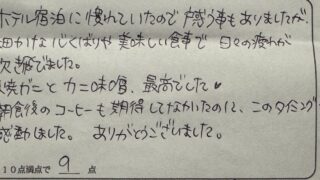 ホテル宿泊に慣れていたので戸惑う事もありましたが、
細かな心くばりや美味しい食事で日々の疲れが
吹き飛びました。
焼ガニとカニ味噌、最高でした♥
朝食後のコーヒーも期待してなかったのに、このタイミング
感動しました。 ありがとうございました。
10点満点で 9 点